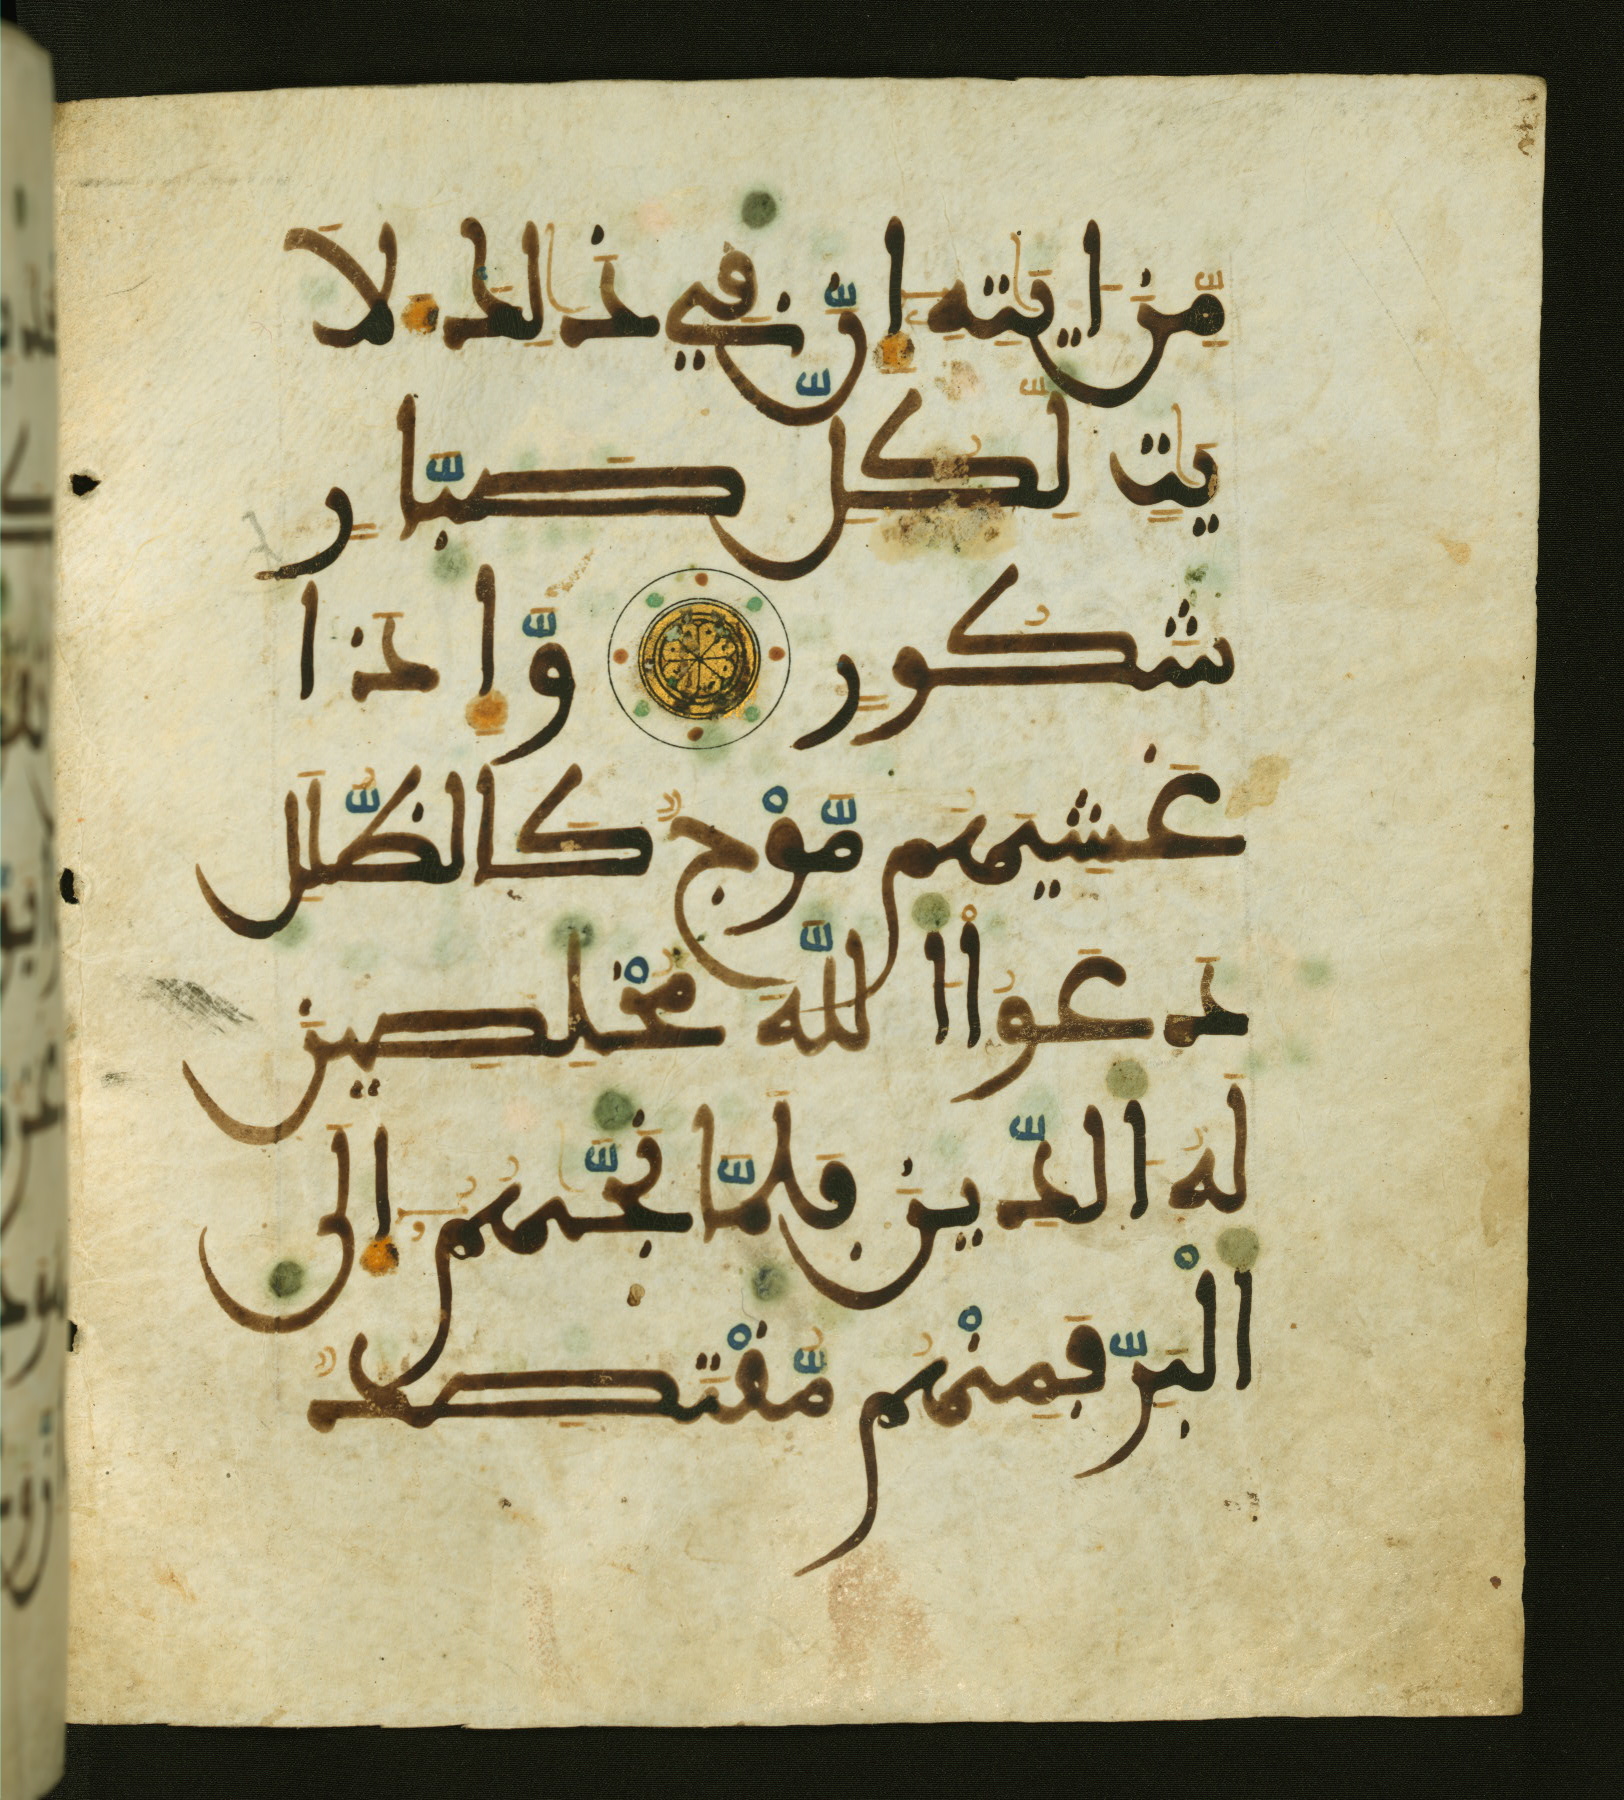 مِّنَ اٰيٰتِهِۦٓ إِنَّ فِي ذَٰلِكَ لَأ
يَٰتٍ لِّكُلِّ صَبَّارٍ
شَكُورٍ وَإِذَا
غَشِيَهُم مَّوْجٌ كَالظُّلَلِ
دَعَوُاْ اللَّهَ مُخْلِصِينَ
لَهُ الدِّينَ فَلَمَّا نَجَّىٰهُمُۥٓ إِلَى
الْبَرِّ فَمِنْهُم مُّقْتَصِدٌ